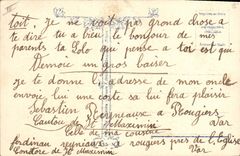 toit. Je ne voit pas grand chose a
te dire tu a lieu le bonjour de mes
parents ta Lolo qui pense a toi est qui
t'envoie un gros baiser
je te donne l'adresse de mon oncle
envoie lui une carte sa lui fera plaisir
Sebastien a Rougiers
Canton de St Maximin Var
Celle de ma cousine
a rougiers près de l'Eglise
Canton de St Maximin Var